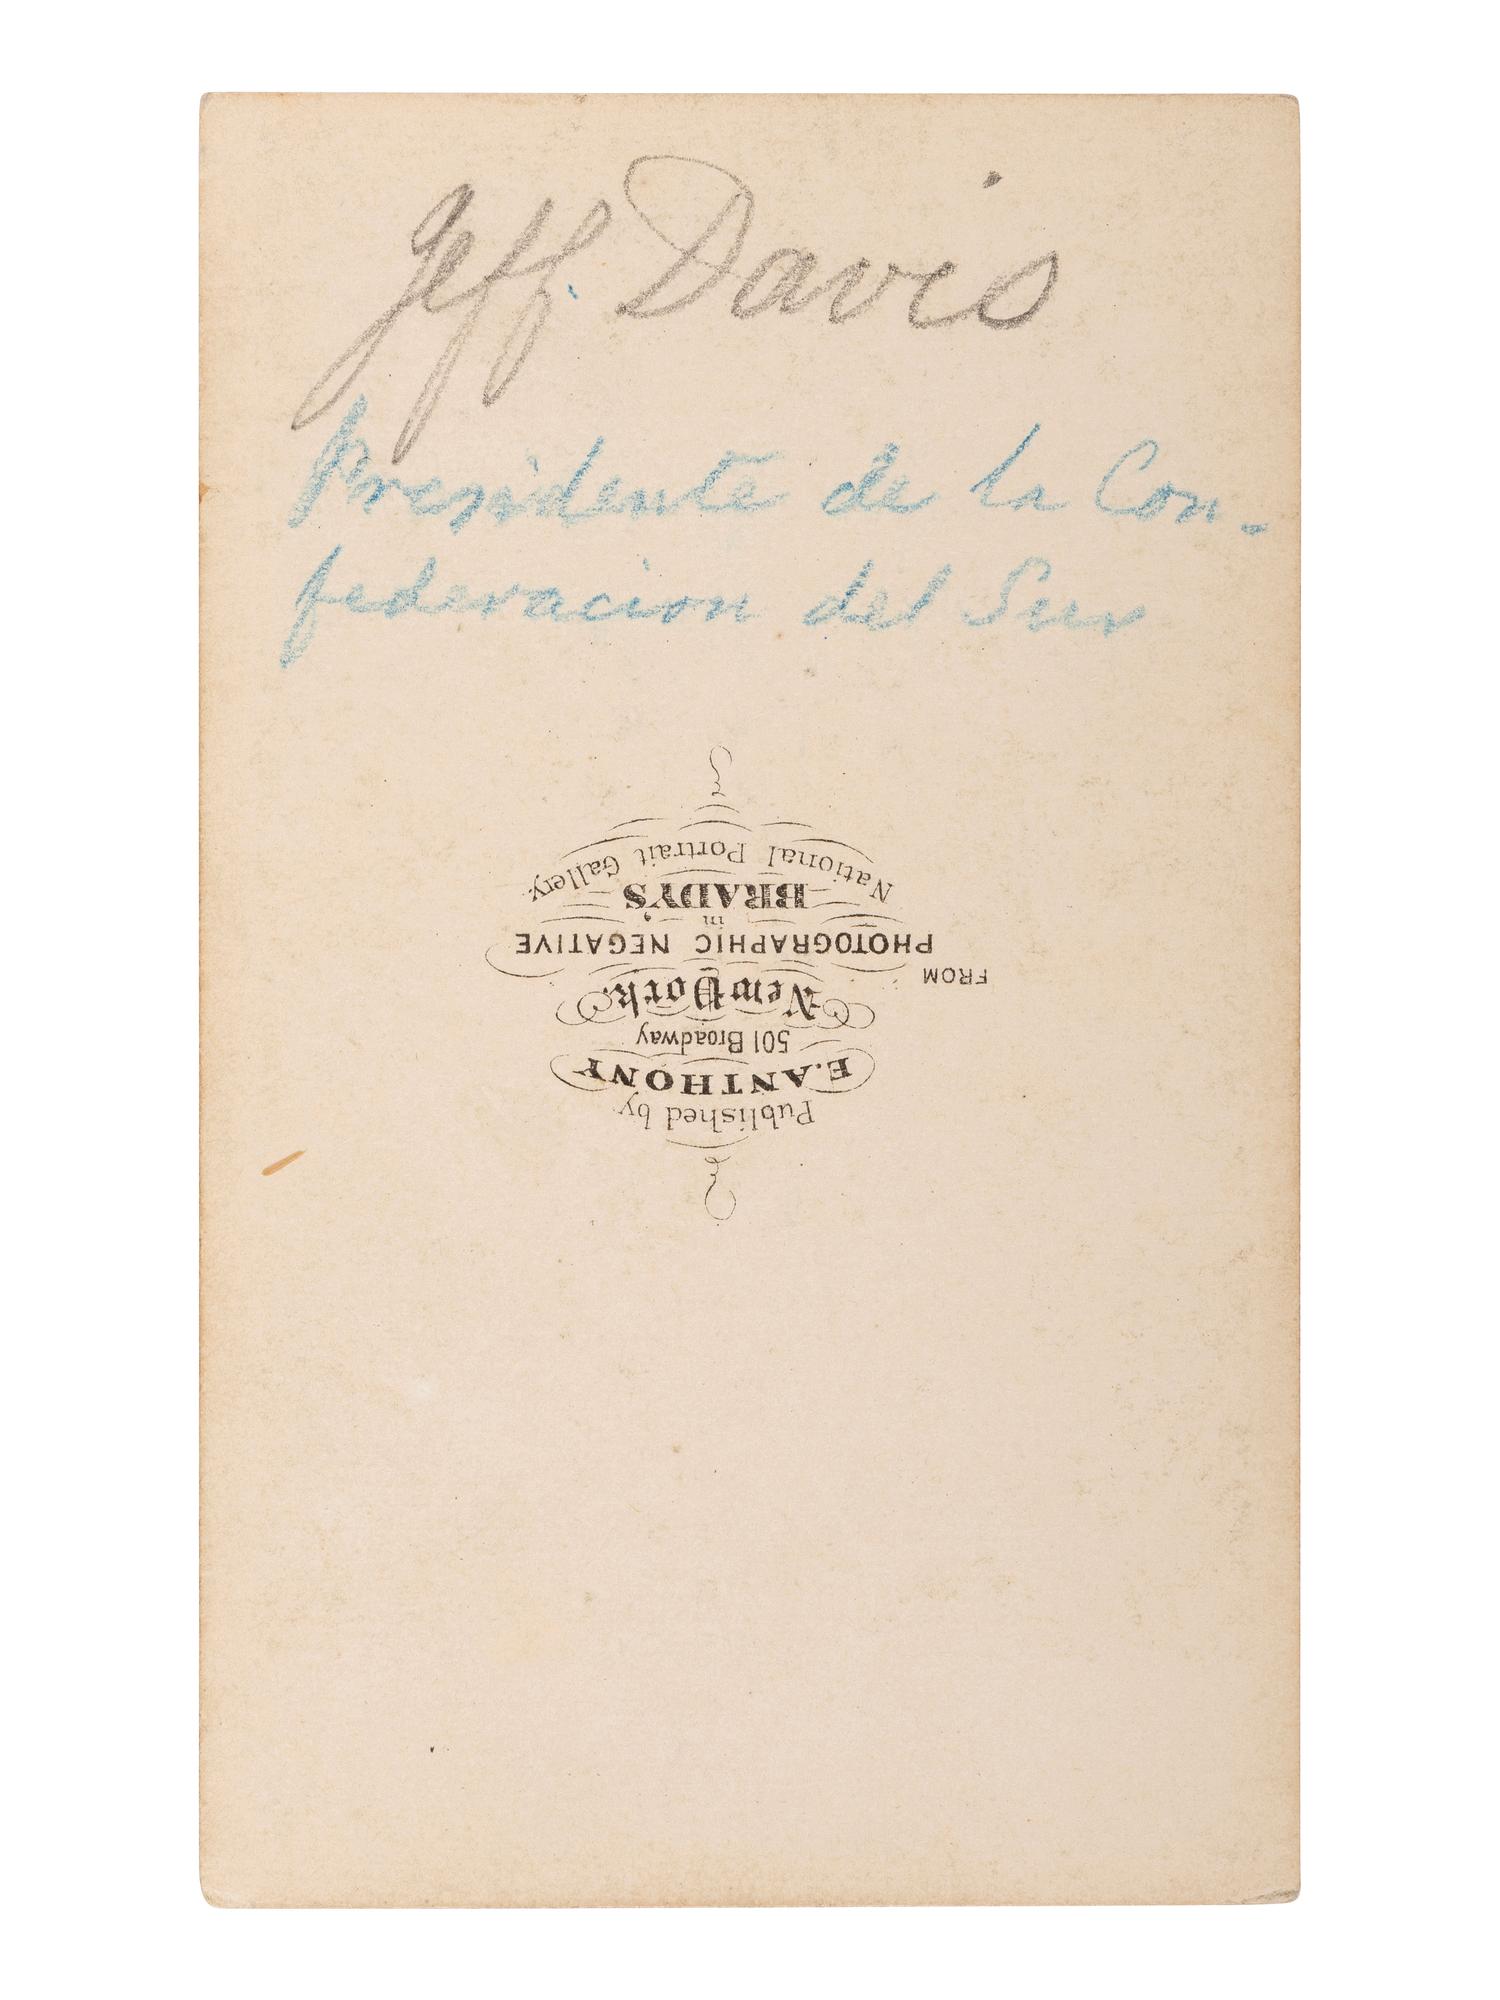 Jeff Davis
Presidente de la Con-
federacion del Sur
Published by
E. ANTHONY
501 Broadway
New York.
FROM
PHOTOGRAPHIC NEGATIVE
in
BRADY'S
National Portrait Gallery.